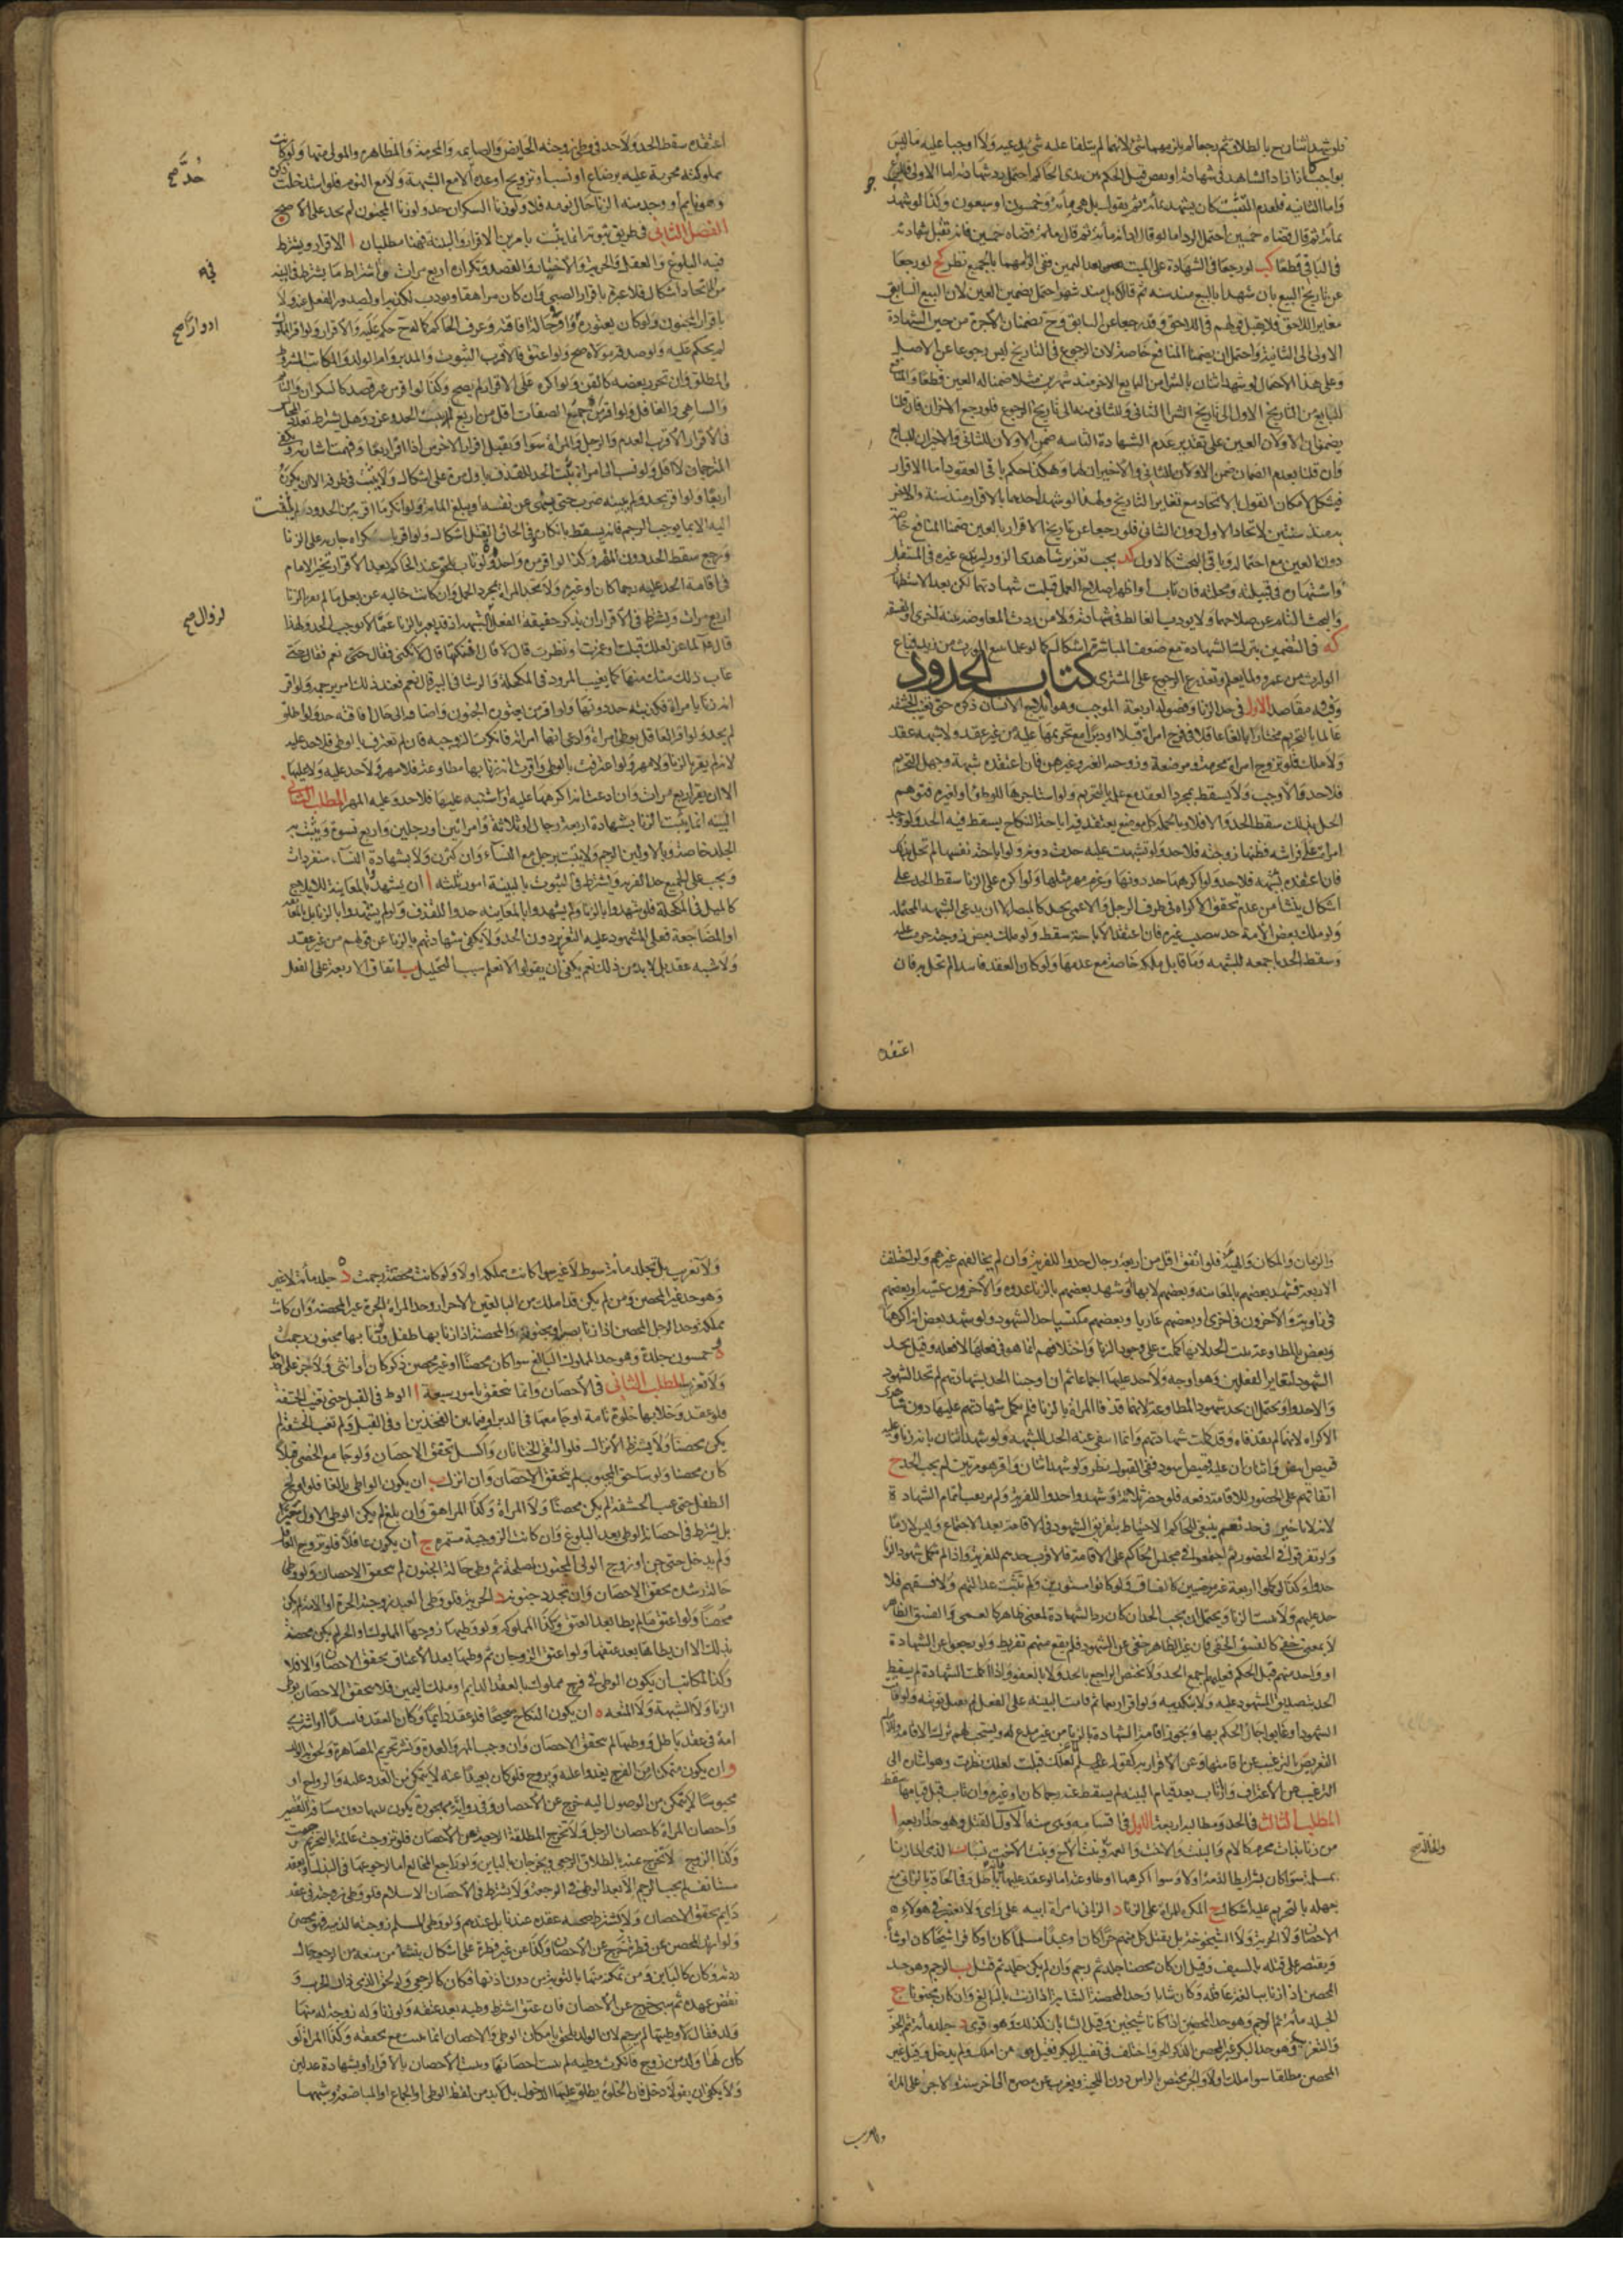 فلو شهد اثنان بالطلاق ثم رجعا لم يلزمهما شئ لانهما لم يتلفا عليه شئ
بواجب اذا زاد الشاهد فى شهادته او نقص قبل الحكم بين يدى الحاكم احتمل رد شهادته اما الاولى
واما الثانية فلعدم التثبت كان يشهد بمائة ثم يقول بل هى مائة وخمسون او سبعون وكذا لو شهد
بمائة ثم قال قضاه خمسين احتمل الرد اما لو قال ادانه مائة ثم قال قضاه خمسين فانه تقبل شهادته
فى الباقى قطعا كب لو رجعا فى الشهادة على الميت بعد اليمين ففى الزامهما بالجميع نظر كج لو رجعا
عن تاريخ البيع بان شهدا بالبيع منذ سنة ثم قالا بل منذ شهر احتمل تضمين العين لان البيع السابق
مغاير اللاحق فلا يقبل قولهم فى اللاحق وقد رجعا عن السابق وح تضمنان الاجرة من حين الشهادة
الاولى الى الثانية واحتمل ان يضمنا المنافع خاصة لان الرجوع فى التاريخ ليس رجوعا عن الاصل
وعلى هذا الاحتمال لو شهد اثنان بالشرا من البايع الاخر منذ شهرين مثلا ضمنا له العين قطعا
للبايع من التاريخ الاول الى تاريخ الشرا الثانى وللثانى منه الى تاريخ الرجوع فلو رجع الاخران فان قلنا
يضمن الاولان العين على تقدير عدم الشهادة الثانية ضمن الاولان للثانى والاخيران للبايع
وان قلنا بعدم الضمان ضمن الاولان للثانى والاخيران لهما وهكذا حكم باقى العقود اما الاقرار
فيشكل لامكان القول بالاتحاد مع تغاير التاريخ ولهذا لو شهد احدهما بالاقرار منذ سنة والاخر
به منذ سنتين لاتحاد الاول دون الثانى فلو رجعا عن تاريخ الاقرار بالعين ضمنا المنافع خاصة
دون العين مع احتماله وباقى البحث كالاول كد يجب تعزير شاهدى الزور ليرتدع غيره فى المستقبل
واشتهاره فى قبيلته ومحلته فان تاب واظهرا اصلاح العمل قبلت شهادتهما لكن بعد الاستظهار
والبحث التام عن صلاحهما ولا يودب الغالط فى شهادته ولا من ردت لمعارضة بينة اخرى او لفسقه
كه فى التضمين بترك الشهادة مع ضعف المباشرة اشكال كما لو علما بيع المورث من زيد فباع
الوارث من عمرو ولما يعلم وتعذر الرجوع على المشترى كتاب الحدود
وفيه مقاصد الاول فى حد الزنا وفصوله اربعة الموجب وهو ايلاج الانسان ذكره حتى تغيب الحشفة
عالما بالتحريم مختارا بالغا عاقلا فى فرج امراة قبلا او دبرا مع تحريمها عليه من غير عقد ولا شبهة عقد
ولا ملك فلو تزوج امراة محرمة ومرضعة وزوجة الغير وغيرهن فان اعتقده شبهة وجهل التحريم
فلا حد والا وجب ولا يسقط بمجرد العقد مع علمه بالتحريم ولو استاجرها للوطى او لغيره فتوهم
الحل بذلك سقط الحد والا فلا وبالجملة كل موضع يعتقد فيه اباحة النكاح يسقط فيه الحد ولو وجد
امراة على فراشه فظنها زوجته فلا حد ولو تشبهت عليه حدت دونه ولو اباحته نفسها لم تحل بذلك
فان اعتقده لشبهة فلا حد ولو اكرهها حد دونها وغرم مهر مثلها ولو اكره على الزنا سقط الحد على
اشكال ينشا من عدم تحقق الاكراه فى طرف الرجل والاعمى يحد كالمبصر الا ان يدعى الشبهة المحتملة
ولو ملك بعض الامة حد بنصيب غيره فان اعتقد الاباحة سقط ولو ملك بعض زوجته حرمت عليه
وسقط الحد باجمعه للشبهة وما قابل ملكه خاصة مع عدمها ولو كان العقد فاسدا لم تحل به فان
اعتقده
اعتقده سقط الحد ولا حد فى وطى زوجته الحايض والصايمة والمحرمة والمظاهرة والمولى منها ولو كانت
مملوكته محرمة عليه برضاع او نسب او تزويج او عدة الا مع الشبهة ولا مع النوم فلو استدخلت
وهو نايم او وجد منه الزنا حال نومه فلا ولو زنا السكران حد ولو زنا المجنون لم يحد على الاصح
حد صح
الفصل الثانى فى طريق ثبوته انما يثبت بامرين الاقرار والبينة فهنا مطلبان ا الاقرار ويشترط
فيه البلوغ والعقل والحرية والاختيار والقصد وتكراره اربع مرات وفى اشتراط ما يشترط فى البينة
فيه
من الاتحاد اشكال فلا عبرة باقرار الصبى وان كان مراهقا ويودب لكذبه او لصدور الفعل عنه ولا
باقرار المجنون ولو كان يعتوره واقر حال افاقته وعرف الحاكم كماله ح حكم عليه والاقرار ولو اقر المملوك
ادوارا صح
لم يحكم عليه ولو صدقه مولاه صح ولو اعتق فالاقرب الثبوت والمدبر وام الولد والمكاتب المشروط
والمطلق وان تحرر بعضه كالقن ولو اكره على الاقرار لم يصح وكذا لو اقر من غير قصد كالسكران والنائم
والساهى والغافل ولو اقر من جمع الصفات اقل من اربع لم يثبت الحد وعزر وهل يشترط تعدد المجالس
فى الاقرار الاقرب العدم والرجل والمراة سوا ويقبل اقرار الاخرس اذا اقر اربعا وفهمت اشارته ويكفى
المترجمان لا اقل ولو نسب الى امراة يثبت الحد للقذف باول مرة على اشكال ولا يثبت فى طرفه الا ان يكرره
اربعا ولو اقر بحد ولم يبينه ضرب حتى ينهى عن نفسه او يبلغ المائة ولو انكر ما اقر به من الحدود لم يلتفت
اليه الا بما يوجب الرجم فانه يسقط بانكاره وفى الحاق القتل اشكال ولو اقر باستكراه جارية على الزنا
ورجع سقط الحد دون المهر وكذا لو اقر مرة واحدة ولو تاب عند الحاكم بعد الاقرار تخير الامام
فى اقامة الحد عليه رجما كان او غيره ولا تحد المراة بمجرد الحمل وان كانت خالية عن بعل ما لم تقر بالزنا
اربع مرات ويشترط فى الاقرار ان يذكر حقيقة الفعل لتزول الشبهة اذ قد يعبر بالزنا عما لا يوجب الحد ولهذا
لزوال صح
قال ع لماعز لعلك قبلت او غمزت او نظرت قال لا قال افنكتها لا تكنى فقال حتى نعم فقال حتى
غاب ذلك منك منها كما يغيب المرود فى المكحلة والرشا فى البير قال نعم فعند ذلك امر برجمه ولو اقر
انه زنا بامراة فكذبته حد دونها ولو اقر من يعتوره الجنون واضافه الى حال افاقته حد ولو اطلق
لم يحد ولو اقر العاقل بوطى امراة وادعى انها امراته فانكرت الزوجية فان لم تعترف بالوطى فلا حد عليه
لانه لم يقر بالزنا ولا مهر ولو اعترفت بالوطى واقرت انه زنى بها مطاوعة فلا مهر ولا حد عليه ولا عليها
الا ان يقر اربع مرات وان ادعت انه اكرهها عليه او اشتبه عليها فلا حد وعليه المهر المطلب الثانى
البينة انما يثبت الزنا بشهادة اربعة رجال او ثلاثة وامراتين او رجلين واربع نسوة ويثبت به
الجلد خاصة وبالاولين الرجم ولا يثبت برجل مع النساء وان كثرن ولا بشهادة النساء منفردات
ويجب على الجميع حد الفرية ويشترط فى الثبوت بالبينة امور ثلثة ا ان يشهدوا بالمعاينة للايلاج
كالميل فى المكحلة فلو شهدوا بالزنا ولم يشهدوا بالمعاينة حدوا للقذف ولو لم يشهدوا بالزنا بل بالمعانقة
او المضاجعة فعلى المشهود عليه التعزير دون الحد ولا يكفى شهادتهم بالزنا عن قولهم من غير عقد
ولا شبهة عقد بل لا بد من ذلك نعم يكفى ان يقولوا لا نعلم سبب التحليل ب اتفاق الاربعة على الفعل
والزمان والمكان والهيئة فلو اتفق اقل من اربعة رجال حدوا للفرية وان لم يخالفهم غيرهم ولو اختلفت
الاربعة فشهد بعضهم بالمعاينة وبعضهم لا بها او شهد بعضهم بالزنا غدوة والاخرون عشية او بعضهم
فى زاوية والاخرون فى اخرى او بعضهم عاريا وبعضهم مكتسيا حد الشهود ولو شهد بعض انه اكرهها
وبعض بالمطاوعة ثبت الحد لانها كملت على وجود الزنا واختلافهم انما هو فى فعلها لا فعله وقيل يحد
الشهود لتغاير الفعلين وهو اوجه ولا حد عليها اجماعا ثم ان اوجبنا الحد بشهادتهم لم تحد الشهود
والا حدوا ويحتمل ان يحد شهود المطاوعة لانهما قذفا المراة بالزنا فلم تكمل شهادتهم عليها دون شاهدى
الاكراه لانهما لم يقذفاها وقد كملت شهادتهم وانما انتفى عنه الحد للشبهة ولو شهد اثنان بانه زنا وعليه
قميص ابيض واثنان ان عليه قميص اسود ففى القبول نظر ولو شهد اثنان واقر هو مرتين لم يجب الحد ج
اتفاقهم على الحضور للاقامة دفعة فلو حضر ثلاثة وشهدوا حدوا للفرية ولم يرتقب اتمام الشهادة
لانه لا تاخير فى حد نعم ينبغى للحاكم الاحتياط بتفريق الشهود فى الاقامة بعد الاجتماع وليس لازما
ولو تفرقوا فى الحضور ثم اجتمعوا فى مجلس الحاكم على الاقامة فالاقرب حدهم للفرية واذا لم تكمل شهود الزنا
حدوا وكذا لو كملوا اربعة غير مرضيين كالفساق ولو كانوا مستورين ولم تثبت عدالتهم ولا فسقهم فلا
حد عليهم ولا يثبت الزنا ويحتمل ان يجب الحد ان كان رد الشهادة لمعنى ظاهر كالعمى والفسق الظاهر
لا بمعنى خفى كالفسق الخفى فان غير الظاهر خفى عن الشهود فلم يقع منهم تفريط ولو رجعوا عن الشهادة
او واحد منهم قبل الحكم فعليهم اجمع الحد ولا يختص الراجع بالحد ولا بالعفو واذا كملت الشهادة لم يسقط
الحد بتصديق المشهود عليه ولا بتكذيبه ولو اقر اربعا ثم قامت البينة على الفعل لم تقبل توبته ولو مات
الشهود او غابوا جاز الحكم بها ويجوز اقامة الشهادة بالزنا من غير مدع له ويستحب لهم ترك الاقامة وللامام
التعريض بالترغيب عن اقامتها وعن الاقرار به كقوله عليه السلم لعلك قبلت لعلك نظرت وهو اشارة الى
الترغيب عن الاعتراف ولو تاب بعد قيام البينة لم يسقط عنه رجما كان او غيره وان تاب قبل قيامها سقط
المطلب الثالث فى الحد ومطالبه اربعة الاول فى اقسامه وهى ستة الاول القتل وهو حد اربعة ا
من زنا بذات محرم كالام والبنت والاخت والعمة وبنت الاخ وبنت الاخت نسبا ب الذمى اذا زنا
بمسلمة سوا كان بشرايط الذمة او لا وسوا اكرهها او طاوعته اما لو عقد عليها فانه باطل وفى الحاقه بالزانى مع
جهله بالتحريم عليه اشكال ج المكره للمراة على الزنا د الزانى بامراة ابيه على راى ولا يعتبر فى هولاء
الاحصان ولا الحرية ولا الشيخوخة بل يقتل كل منهم حرا كان او عبدا مسلما كان او كافرا شيخا كان او شابا
ويقتصر على قتله بالسيف وقيل ان كان محصنا جلد ثم رجم وان لم يكن جلد ثم قتل ب الرجم وهو حد
المحصن اذا زنا ببالغة عاقلة وكان شابا وحد المحصنة الشابة اذا زنت بالبالغ وان كان مجنونا ج
الجلد مائة ثم الرجم وهو حد المحصنين اذا كانا شيخين وقيل الشابان كذلك وهو اقوى د جلد مائة ثم الجز
والتغريب وهو حد البكر غير المحصن الذكر الحر واختلف فى تفسير البكر فقيل هو من املك ولم يدخل وقيل غير
المحصن مطلقا سوا املك او لا والجز مختص بالراس دون اللحية ويغرب عن مصره الى اخر سنة ولا جز على المراة
ولا تغريب
ولا تغريب بل تجلد مائة سوط لا غير سوا كانت مملكة او لا ولو كانت محصنة رجمت ه جلد مائة لا غير
وهو حد غير المحصن ومن لم يكن قد املك من البالغين الاحرار وحد المراة الحرة غير المحصنة وان كانت
مملكة وحد الرجل المحصن اذا زنا بصبية او مجنونة والمحصنة اذا زنا بها طفل ولو زنا بها مجنون رجمت
و خمسون جلدة وهو حد المملوك البالغ سوا كان محصنا او غير محصن ذكرا كان او انثى ولا جز على احدهما
ولا تغريب المطلب الثانى فى الاحصان وانما يتحقق بامور سبعة ا الوطى فى القبل حتى تغيب الحشفة
فلو عقد وخلا بها خلوة تامة او جامعها فى الدبر او فيما بين الفخذين او فى القبل ولم تغب الحشفة لم
يكن محصنا ولا يشترط الانزال فلو التقى الختانان واكسل تحقق الاحصان ولو جامع الخصى قبلا
كان محصنا ولو ساحق المجبوب لم يتحقق الاحصان وان انزل ب ان يكون الواطى بالغا فلو اولج
الطفل حتى غيب الحشفة لم يكن محصنا ولا المراة وكذا المراهق وان بلغ لم يكن الوطى الاول معتبرا
بل يشترط فى احصانه الوطى بعد البلوغ وان كانت الزوجية مستمرة ج ان يكون عاقلا فلو تزوج العاقل
ولم يدخل حتى جن او زوج الولى المجنون لمصلحته ثم وطى حالة الجنون لم يتحقق الاحصان ولو وطى
حالة رشده تحقق الاحصان وان تجدد جنونه د الحرية فلو وطى العبد زوجته الحرة او الامة لم يكن
محصنا ولو اعتق ما لم يطا بعد العتق وكذا المملوكة ولو وطيها زوجها المملوك او الحر لم يكن محصنة
بذلك الا ان يطاها بعد عتقها ولو اعتق الزوجان ثم وطيها بعد الاعتاق تحقق الاحصان والا فلا
وكذا المكاتب ان يكون الوطى فى فرج مملوك بالعقد الدايم او ملك اليمين فلا يتحقق الاحصان بوطى
الزنا ولا الشبهة ولا المتعة ه ان يكون النكاح صحيحا فلو عقد دايما وكان العقد فاسدا او اشترى
امة فى عقد باطل ووطيها لم يتحقق الاحصان وان وجب المهر والعدة ونشر تحريم المصاهرة ولحق به الولد
و ان يكون متمكنا من الفرج يغدوا عليه ويروح فلو كان بعيدا عنه لا يتمكن من الغدو عليه والرواح او
محبوسا لا يتمكن من الوصول اليه خرج عن الاحصان وفى رواية مهجورة يكون بينهما دون مسافة التقصير
واحصان المراة كاحصان الرجل ولا تخرج المطلقة الرجعية عن الاحصان فلو تزوجت عالمة بالتحريم رجمت
وكذا الزوج لا تخرج عنه بالطلاق الرجعى ويخرجان بالباين ولو راجع المخالع اما لرجوعها فى البذل او بعقد
مستانف لم يجب الرجم الا بعد الوطى فى الرجعة ولا يشترط فى الاحصان الاسلام فلو وطى زوجته فى عقد
دايم تحقق الاحصان ولا يشترط صحة عقده عندنا بل عندهم ولو وطى المسلم زوجته الذمية فهو محصن
ولو ارتد المحصن عن فطرة خرج عن الاحصان وكذا عن غير فطرة على اشكال ينشا من منعه من الرجعة حال
ردته وكان كالباين ومن تمكنه منها بالتوبة من دون اذنها فكان كالرجعى ولو لحق الذمى دار الحرب و
نقض عهده ثم سبى خرج عن الاحصان فان عتق اشترط وطيه بعد عتقه ولو زنا وله زوجة له منها
ولد فقال ما وطيتها لم يرجم لان الولد يلحق بامكان الوطى والاحصان انما يثبت مع تحققه وكذا المراة لو
كان لها ولد من زوج فانكرت وطيه لم يثبت احصانها ويثبت الاحصان بالاقرار او بشهادة عدلين
ولا يكفى ان يقولا دخل فان الخلوة يطلق عليها الدخول بل لا بد من لفظ الوطى او الجماع او المباضعة وشبهها